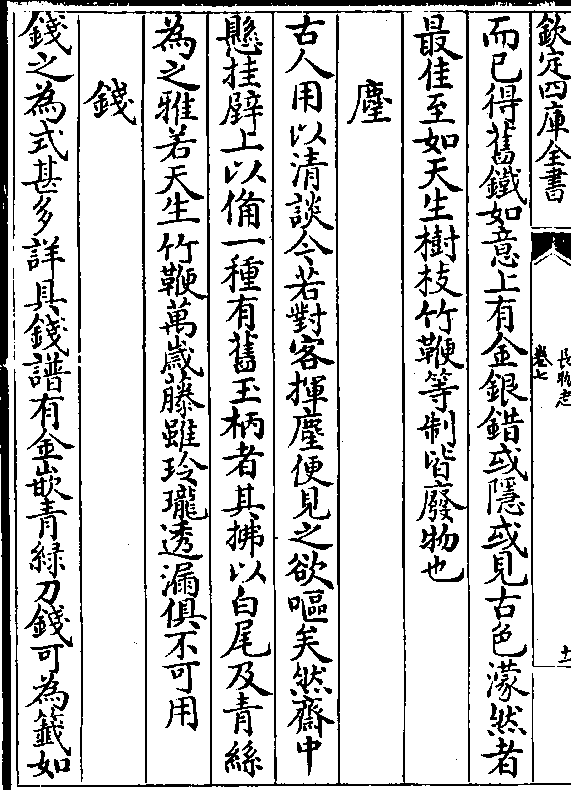 欽定四庫全書
長物志
卷七
十一
而已得舊鐵如意上有金銀錯或隱或見古色濛然者
最佳至如天生樹枝竹鞭等制皆廢物也
麈
古人用以清談今若對客揮麈便見之欲嘔矣然齋中
懸挂壁上以備一種有舊玉柄者其拂以白尾及青絲
為之雅若天生竹鞭萬歲藤雖玲瓏透漏俱不可用
錢
錢之為式甚多詳具錢譜有金嵌青綠刀錢可為籤如